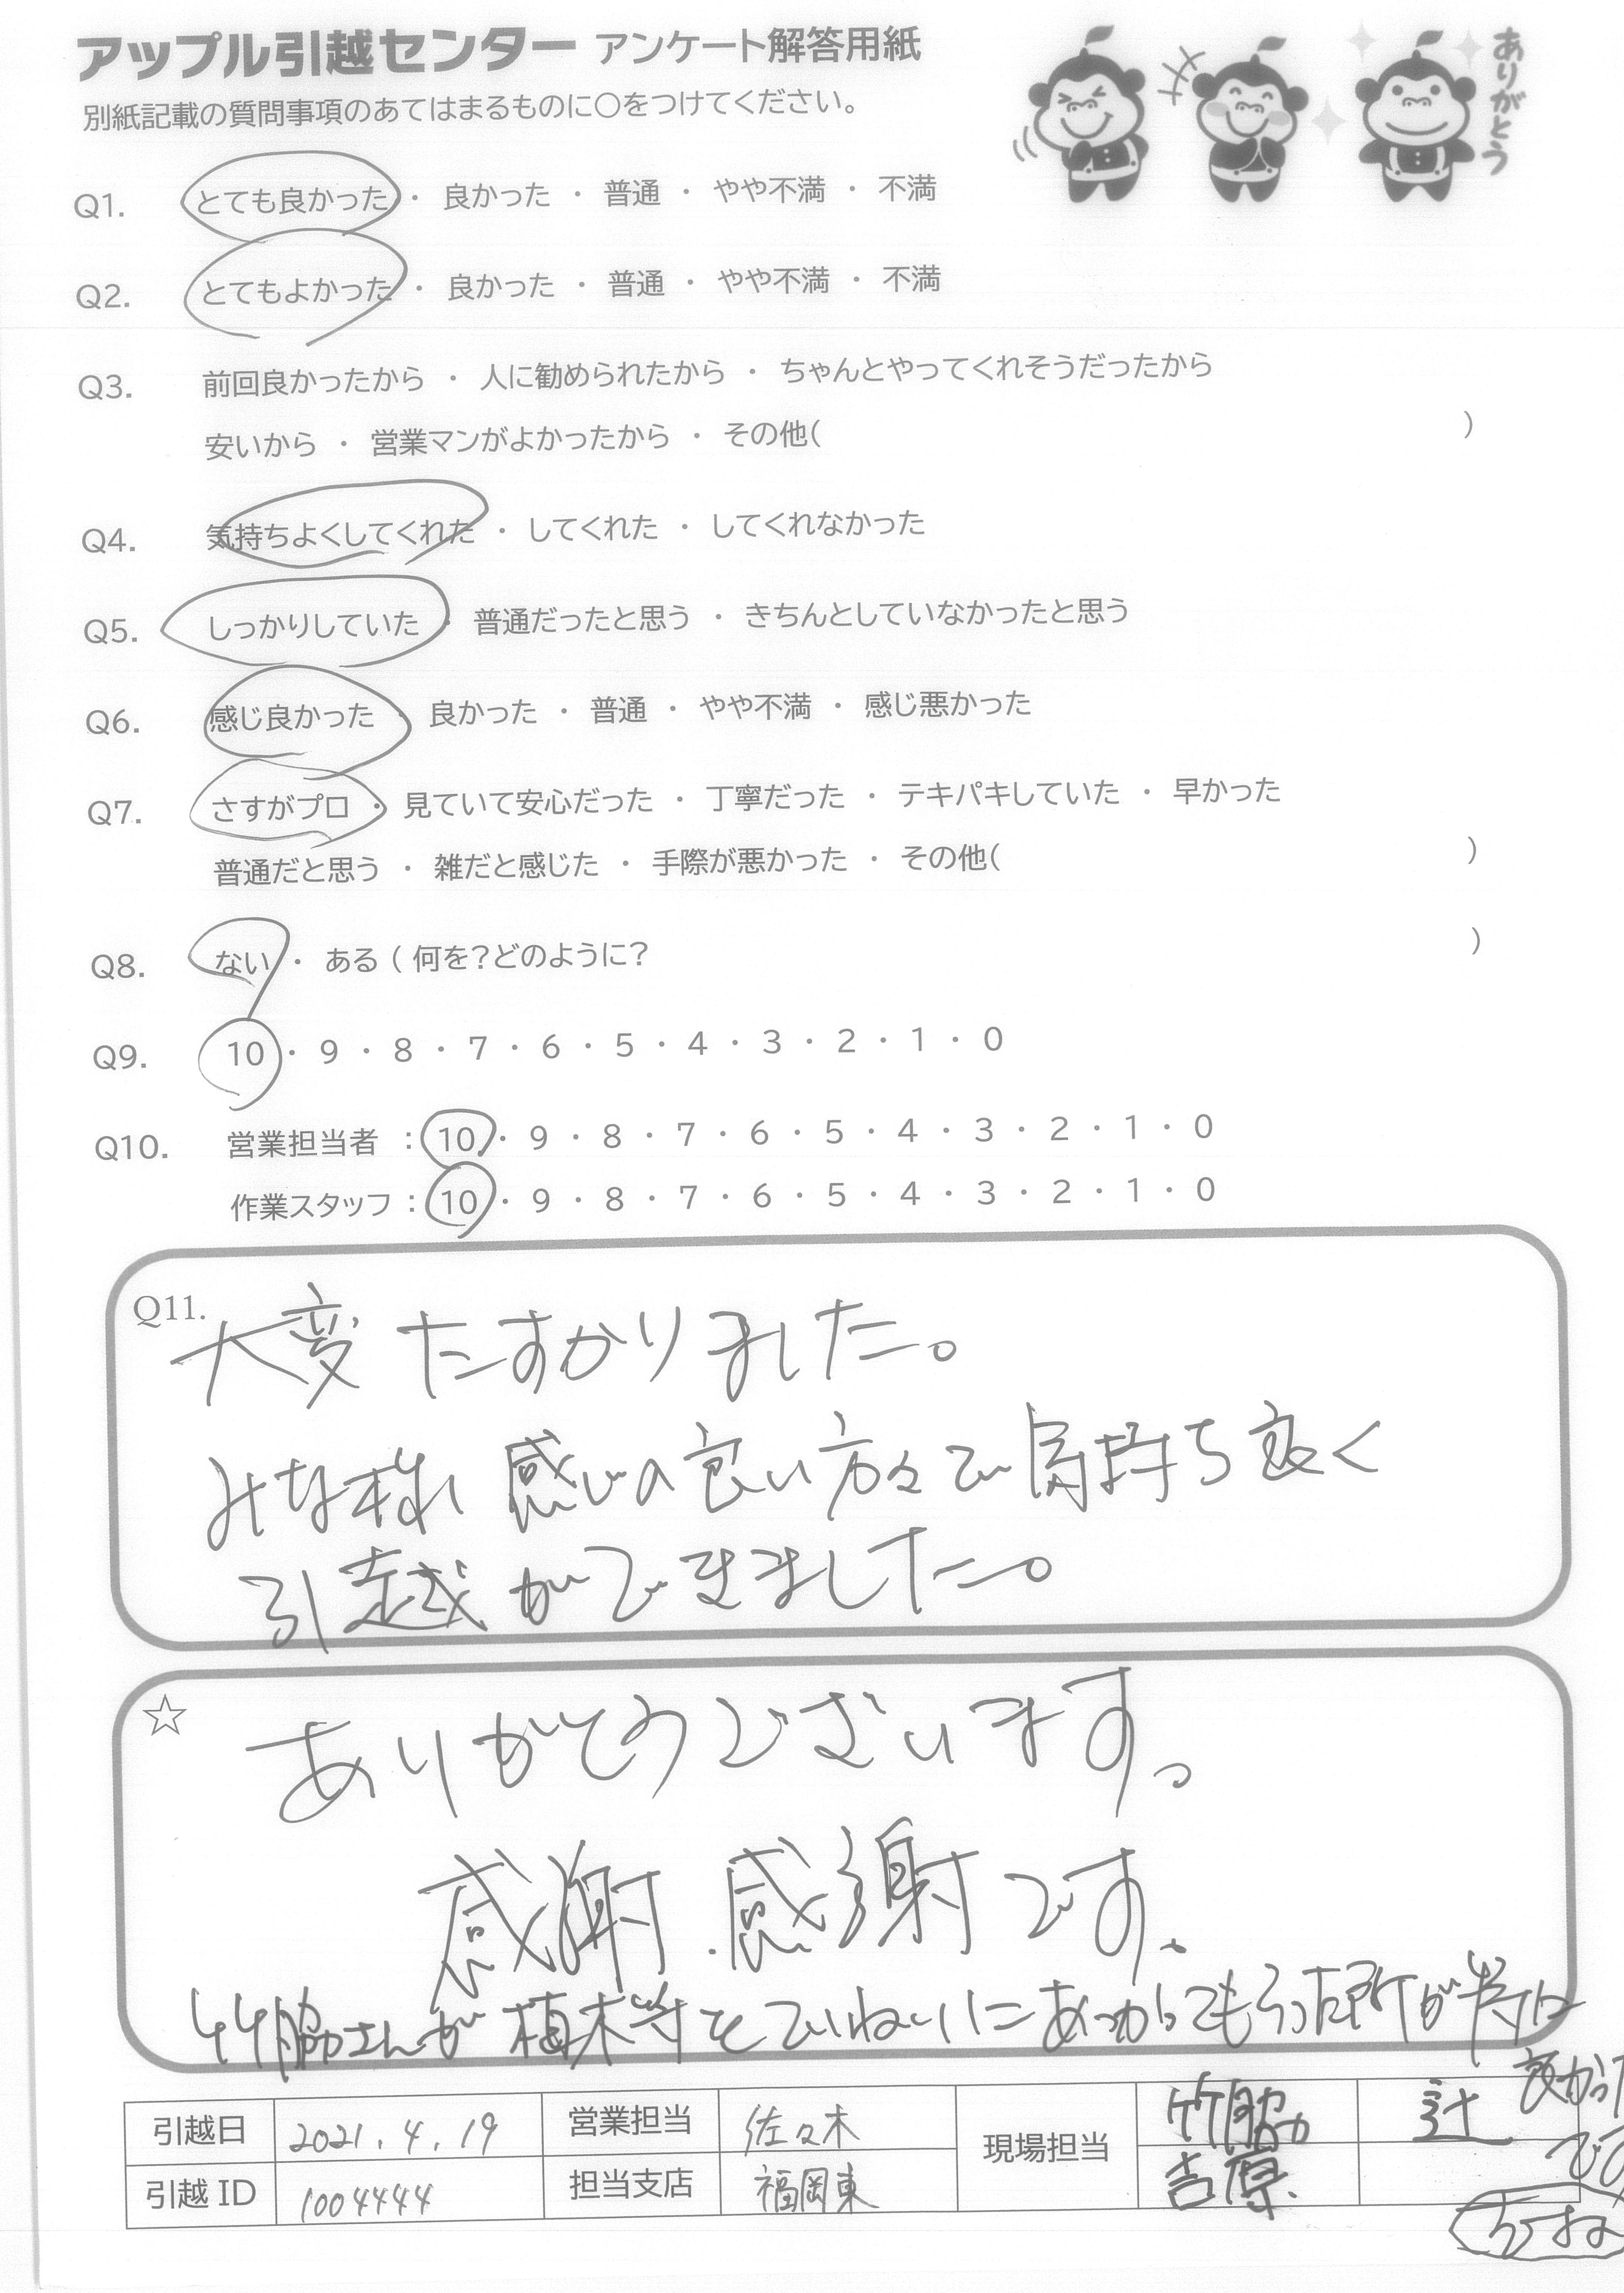 アップル引越センター アンケート解答用紙
別紙記載の質問事項のあてはまるものに○をつけてください。
ありがとう
Q1. とても良かった ・ 良かった ・ 普通 ・ やや不満 ・ 不満
Q2. とてもよかった ・ 良かった ・ 普通 ・ やや不満 ・ 不満
Q3. 前回良かったから ・ 人に勧められたから ・ ちゃんとやってくれそうだったから
安いから ・ 営業マンがよかったから ・ その他( )
Q4. 気持ちよくしてくれた ・ してくれた ・ してくれなかった
Q5. しっかりしていた ・ 普通だったと思う ・ きちんとしていなかったと思う
Q6. 感じ良かった ・ 良かった ・ 普通 ・ やや不満 ・ 感じ悪かった
Q7. さすがプロ ・ 見ていて安心だった ・ 丁寧だった ・ テキパキしていた ・ 早かった
普通だと思う ・ 雑だと感じた ・ 手際が悪かった ・ その他( )
Q8. ない ・ ある ( 何を?どのように? )
Q9. 10 ・ 9 ・ 8 ・ 7 ・ 6 ・ 5 ・ 4 ・ 3 ・ 2 ・ 1 ・ 0
Q10. 営業担当者 : 10 ・ 9 ・ 8 ・ 7 ・ 6 ・ 5 ・ 4 ・ 3 ・ 2 ・ 1 ・ 0
作業スタッフ : 10 ・ 9 ・ 8 ・ 7 ・ 6 ・ 5 ・ 4 ・ 3 ・ 2 ・ 1 ・ 0
Q11. 大変たすかりました。
みな様 感じの良い方々で気持ち良く
引越ができました。
☆ ありがとうございます。
感謝.感謝です。
竹脇さんが植木等をていねいにあつかってもらった所が特に
良かった
引越日 2021.4.19 営業担当 佐々木 現場担当 竹脇 辻
引越 ID 1004444 担当支店 福岡東 吉原